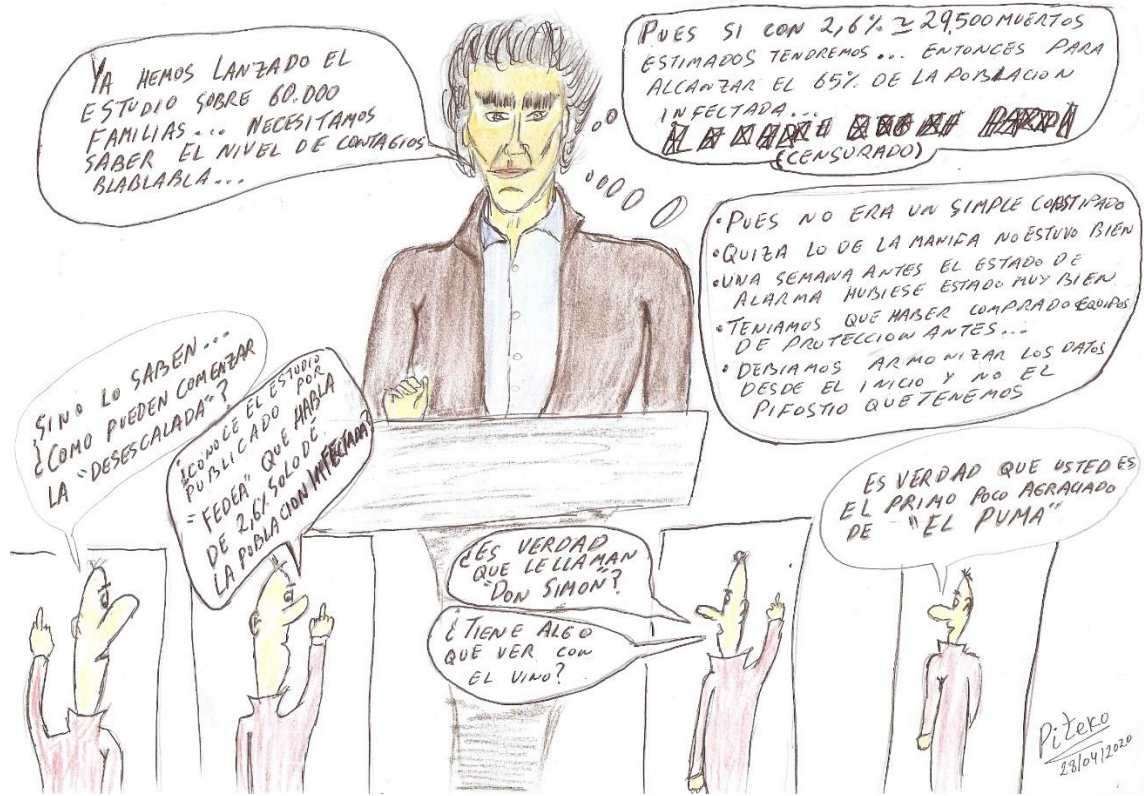 YA HEMOS LANZADO EL
ESTUDIO SOBRE 60.000
FAMILIAS... NECESITAMOS
SABER EL NIVEL DE CONTAGIOS
BLABLABLA...
PUES SI CON 2,6% ≃ 29,500 MUERTOS
ESTIMADOS TENDREMOS... ENTONCES PARA
ALCANZAR EL 65% DE LA POBLACION
INFECTADA...
(CENSURADO)
• PUES NO ERA UN SIMPLE CONSTIPADO
• QUIZA LO DE LA MANIFA NO ESTUVO BIEN
• UNA SEMANA ANTES EL ESTADO DE
ALARMA HUBIESE ESTADO MUY BIEN
• TENIAMOS QUE HABER COMPRADO EQUIPOS
DE PROTECCION ANTES...
• DEBIAMOS ARMONIZAR LOS DATOS
DESDE EL INICIO Y NO EL
PIFOSTIO QUE TENEMOS
SI NO LO SABEN...
¿COMO PUEDEN COMENZAR
LA "DESESCALADA"?
¿CONOCE EL ESTUDIO
PUBLICADO POR
"FEDEA" QUE HABLA
DE 2,6% SOLO DE
LA POBLACION INFECTADA?
¿ES VERDAD
QUE LE LLAMAN
"DON SIMON"?
¿TIENE ALGO
QUE VER CON
EL VINO?
ES VERDAD QUE USTED ES
EL PRIMO POCO AGRACIADO
DE "EL PUMA"
Piteko
28/04/2020